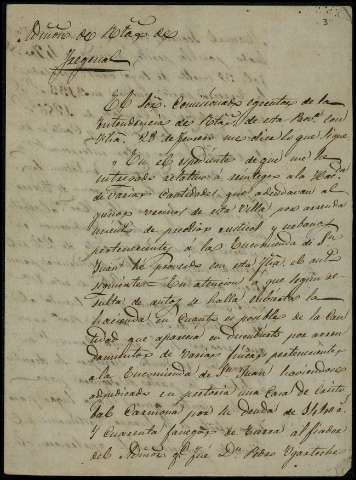 Admón. de Rtas. de
Fregenal
El Sor. Comisionado egecutor de la
Intendencia de Rtas. de esta Prova. con
fha. 28 de me dice lo que sigue
" En el espediente de que me ha
relativo a reintegro a la Hacda.
de varias cantidades que adeudavan al
gunos vecinos de esta Villa por arrenda
mientos de predios rusticos y urbanos
pertenecientes a la Encomienda de Sn.
Juan he proveido con esta fha. el auto
siguiente - En atencion a que segun re
sulta de autos se halla cubierta la
hacienda en cuanto es posible de la can
tidad que aparecia en descubierto por arren
damientos de varias fincas pertenecientes
a la Encomienda de Sn. Juan haviendose
adjudicado en pretoria una Casa de Cristo
bal Carmona por la deuda de
Y cuarenta fanegas de tierra al fiador
del Admor. qe. fué Dn. Pedro
3